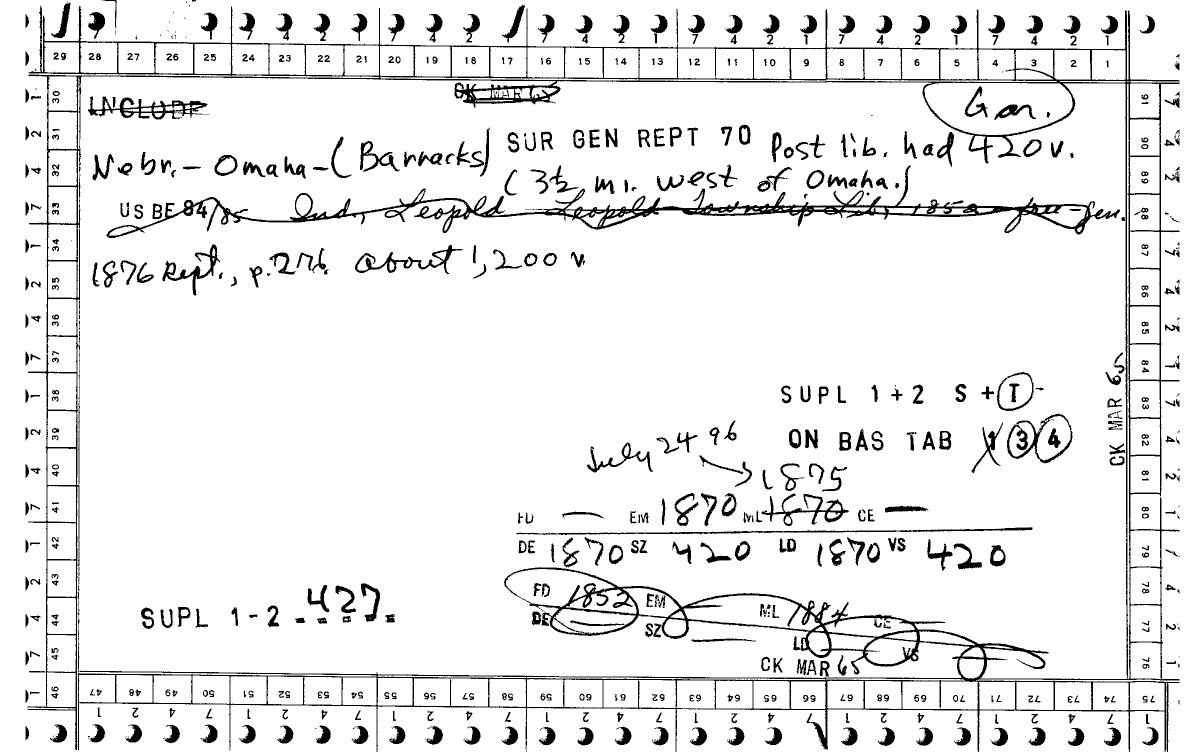 7 1 7 4 2 1 7 4 2 1 7 4 2 1 7 4 2 1 7 4 2 1
29 28 27 26 25 24 23 22 21 20 19 18 17 16 15 14 13 12 11 10 9 8 7 6 5 4 3 2 1
INCLUDE CK MAR 65 Gen.
Nebr.- Omaha-(Barracks) SUR GEN REPT 70 Post lib. had 420 v.
(3½ mi. west of Omaha.)
US BE 84/85 Ind., Leopold Leopold Township Lib, 1852 - free-gen.
1876 Rept., p.276. about 1,200 v.
SUPL 1+2 S + T -
ON BAS TAB 1 3 4
July 24 96
1875
FD — EM 1870 ML 1870 CE —
DE 1870 SZ 420 LD 1870 VS 420
FD 1852 EM — ML 1884 CE —
DE — SZ — LD — VS —
SUPL 1-2 427
CK MAR 65
CK MAR 65
30 31 32 33 34 35 36 37 38 39 40 41 42 43 44 45 46
91 90 89 88 87 86 85 84 83 82 81 80 79 78 77 76
47 48 49 50 51 52 53 54 55 56 57 58 59 60 61 62 63 64 65 66 67 68 69 70 71 72 73 74 75
1 2 4 7 1 2 4 7 1 2 4 7 1 2 4 7 1 2 4 7 1 2 4 7 1 2 4 7 1